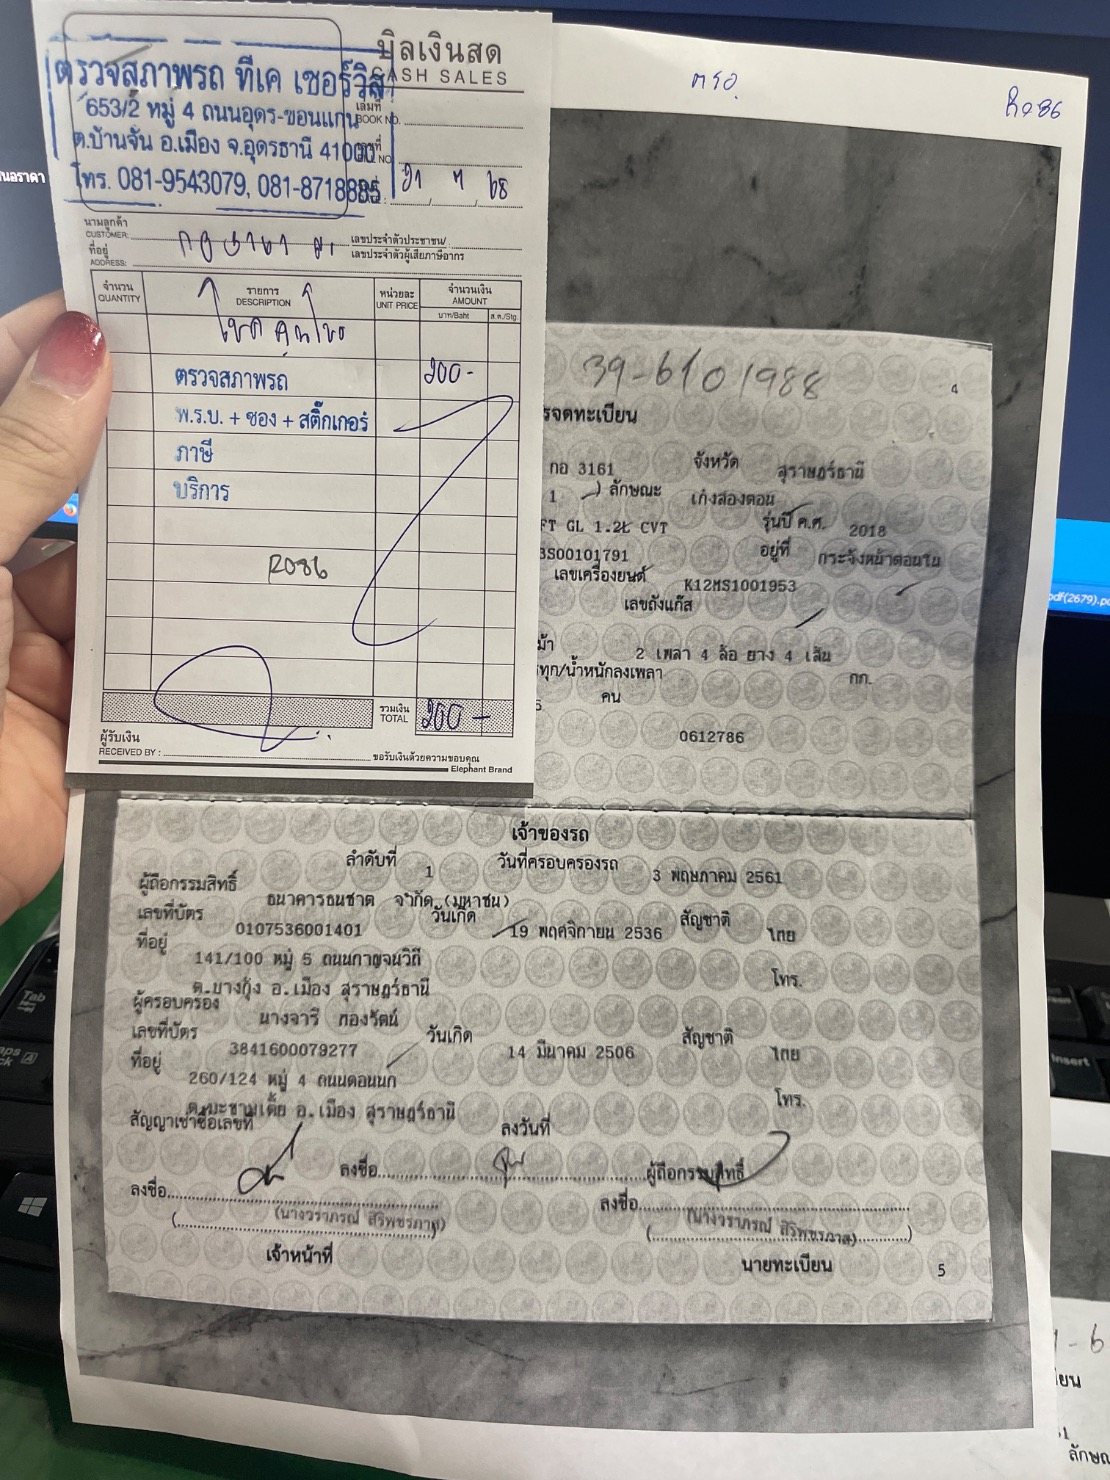 บิลเงินสด
CASH SALES
ตรวจสภาพรถ ทีเค เซอร์วิส
653/2 หมู่ 4 ถนนอุดร-ขอนแก่น
ต.บ้านจั่น อ.เมือง จ.อุดรธานี 41000
โทร. 081-9543079, 081-8718885
เล่มที่
BOOK NO.
NO.
21 7 68
นามลูกค้า
CUSTOMER:
เลขประจำตัวประชาชน/
ที่อยู่
ADDRESS:
เลขประจำตัวผู้เสียภาษีอากร
จำนวน รายการ หน่วยละ จำนวนเงิน
QUANTITY DESCRIPTION UNIT PRICE AMOUNT
บาท/Baht ส.ต./Stg.
ตรวจสภาพรถ 200-
พ.ร.บ. + ซอง + สติ๊กเกอร์
ภาษี
บริการ
R086
รวมเงิน
TOTAL 200-
ผู้รับเงิน
RECEIVED BY :
ขอรับเงินด้วยความขอบคุณ
Elephant Brand
ตรอ.
R086
39-6101988
4
รจดทะเบียน
กอ 3161 จังหวัด สุราษฎร์ธานี
1 ลักษณะ เก๋งสองตอน
FT GL 1.2L CVT รุ่นปี ค.ศ. 2018
3S00101791 อยู่ที่ กระจังหน้าตอนใน
เลขเครื่องยนต์ K12MS1001953
เลขถังแก๊ส
2 เพลา 4 ล้อ ยาง 4 เส้น
ทุก/น้ำหนักลงเพลา กก.
คน
0612786
เจ้าของรถ
ลำดับที่ 1 วันที่ครอบครองรถ 3 พฤษภาคม 2561
ผู้ถือกรรมสิทธิ์ ธนาคารธนชาต จำกัด (มหาชน)
เลขที่บัตร 0107536001401 วันเกิด 19 พฤศจิกายน 2536 สัญชาติ ไทย
ที่อยู่ 141/100 หมู่ 5 ถนนกาญจนวิถี โทร.
ต.บางกุ้ง อ.เมือง สุราษฎร์ธานี
ผู้ครอบครอง นางจารี ทองรัตน์
เลขที่บัตร 3841600079277 วันเกิด 14 มีนาคม 2506 สัญชาติ ไทย
ที่อยู่ 260/124 หมู่ 4 ถนนดอนนก โทร.
ต.มะขามเตี้ย อ.เมือง สุราษฎร์ธานี
สัญญาเช่าซื้อเลขที่ ลงวันที่
ลงชื่อ ผู้ถือกรรมสิทธิ์
ลงชื่อ ลงชื่อ
(นางวราภรณ์ สิริพชรภาส) (นางวราภรณ์ สิริพชรภาส)
เจ้าหน้าที่ นายทะเบียน
5
pdf(2679).pd
Tab
Insert